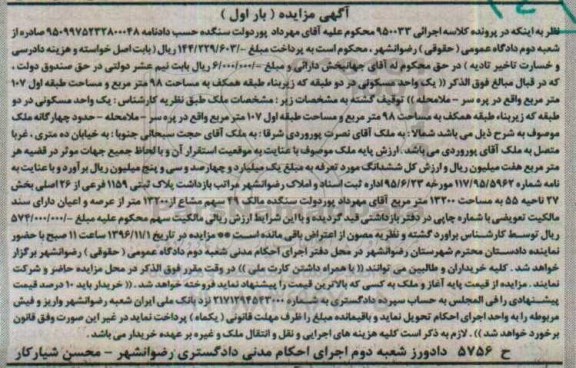 آگهی مزایده ( بار اول )
نظر به اینکه در پرونده کلاسه اجرائی ۹۵۰۰۳۳ محکوم علیه آقای مهرداد پوردولت سنگده حسب دادنامه ۹۵۰۹۹۷۵۲۳۳۸۰۰۰۴۸ صادره از
شعبه دوم دادگاه عمومی ( حقوقی ) رضوانشهر ، محکوم است به پرداخت مبلغ -/۱۴۴/۲۲۹/۶۰۳ ریال ( بابت اصل خواسته و هزینه دادرسی
و خسارت تاخیر تادیه ) در حق محکوم له آقای جهانبخش دارائی و مبلغ -/۶/۰۰۰/۰۰۰ ریال بابت نیم عشر دولتی در حق صندوق دولت ،
که در قبال مبالغ فوق الذکر (( یک واحد مسکونی در دو طبقه که زیربناء طبقه همکف به مساحت ۹۸ متر مربع و مساحت طبقه اول ۱۰۷
متر مربع واقع در پره سر – ملامحله )) توقیف گشته به مشخصات زیر : مشخصات ملک طبق نظریه کارشناس : یک واحد مسکونی در دو
طبقه که زیربناء طبقه همکف به مساحت ۹۸ متر مربع و مساحت طبقه اول ۱۰۷ متر مربع واقع در پره سر – ملامحله – حدود چهارگانه ملک
موصوف به شرح ذیل می باشد شمالا : به ملک آقای نصرت پوروردی شرقا : به ملک آقای حجت سبحانی جنوبا : به خیابان ده متری ، غربا
متصل به ملک آقای پوروردی می باشد . ارزش پایه ملک موصوف با عنایت به موقعیت استقرار آن و با لحاظ جمیع جهات موثر در قضیه هر
متر مربع هفت میلیون ریال و ارزش کل ششدانگ مورد تعرفه به مبلغ یک میلیارد و چهارصد و سی و پنج میلیون ریال برآورد و با عنایت به
نامه شماره ۱۱۷/۹۵/۵۹۶۲ مورخه ۹۵/۶/۲۳ اداره ثبت اسناد و املاک رضوانشهر مراتب بازداشت پلاک ثبتی ۱۱۵۹ فرعی از ۲۶ اصلی بخش
۲۷ ناحیه ۵۵ به مساحت ۱۳۲۰۰ متر مربع آقای مهرداد پوردولت سنگده مالک سهم مشاع از ۱۳۲۰۰ متر از عرصه و اعیان دارای سند
مالکیت تعویضی با شماره چاپی در دفتر بازداشتی قید گردیده و با این شرایط ارزش ریالی مالکیت سهم محکوم علیه مبلغ -/۵۷۴/۰۰۰/۰۰۰
ریال توسط کارشناس برآورد گشته و نظریه مصون از اعتراض باقی مانده است ** مزایده در تاریخ ۱۳۹۶/۱۱/۱ ساعت ۱۱ صبح با حضور
نماینده دادستان محترم شهرستان رضوانشهر در محل دفتر اجرای احکام مدنی شعبه دوم دادگاه عمومی ( حقوقی ) رضوانشهر برگزار
خواهد شد . کلیه خریداران و طالبین می توانند (( با همراه داشتن کارت ملی )) در وقت مقرر فوق الذکر در محل مزایده حاضر و شرکت
نمایند . مزایده از قیمت پایه آغاز و ملک به کسی که بالاترین قیمت را پیشنهاد نماید فروخته خواهد شد . (( خریدار باید ۱۰ درصد قیمت
پیشنهادی را فی المجلس به حساب سپرده دادگستری به شماره ۲۱۷۱۲۹۴۵۲۳۰۰۰ نزد بانک ملی ایران شعبه رضوانشهر واریز و فیش
مربوطه را به واحد اجرای احکام تحویل نماید و باقیمانده مبلغ را ظرف مهلت قانونی ( یکماه ) پرداخت نماید در غیر این صورت وفق قانون
برخورد خواهد شد )) . لازم به ذکر است کلیه هزینه های اجرایی و نقل و انتقال ملک و غیره بر عهده خریدار می باشد .
ح ۵۷۵۶ دادورز شعبه دوم اجرای احکام مدنی دادگستری رضوانشهر – محسن شیارکار